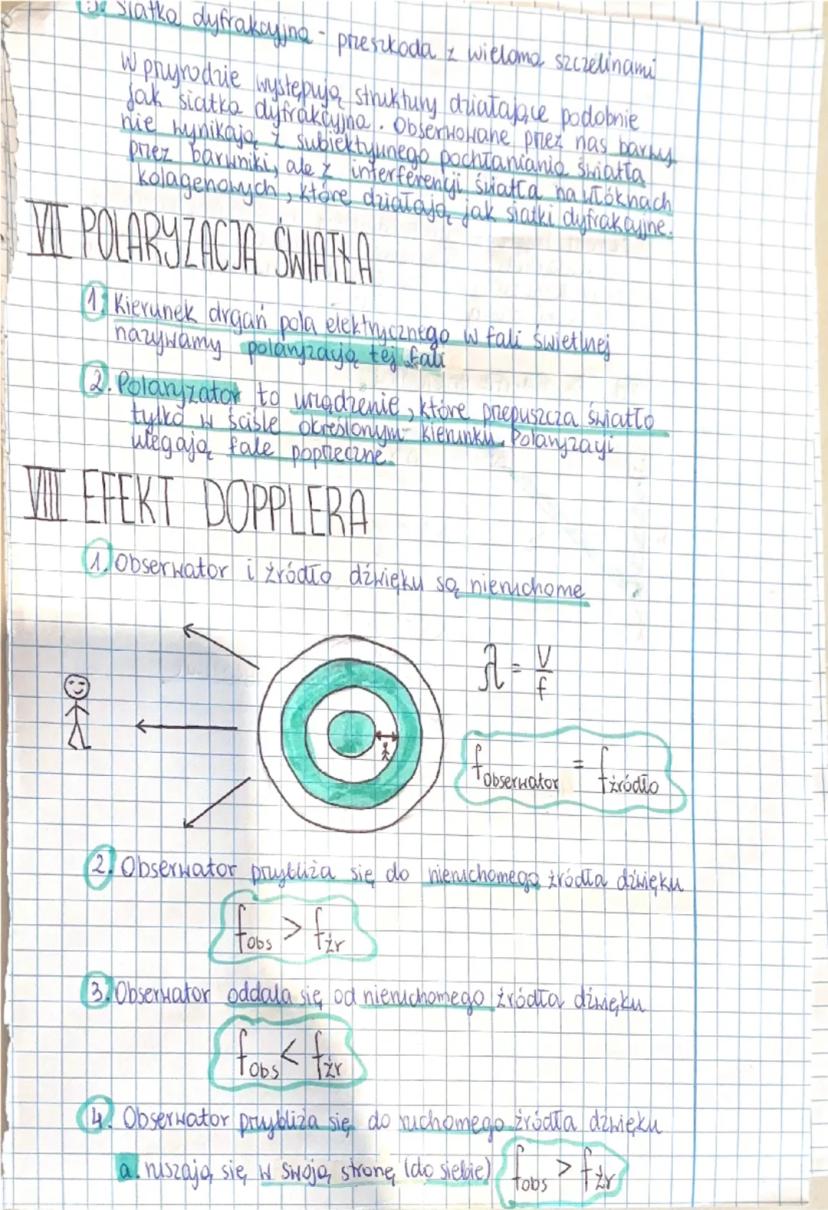 Siatka dyfrakcyjna - przeszkoda z wieloma szczelinami
W przyrodzie występują struktury działające podobnie
jak siatka dyfrakcyjna. Obserwowane przez nas barwy
nie wynikają z subiektywnego pochłaniania światła
przez barwniki, ale z interferencji światła na włóknach
kolagenowych, które działają jak siatki dyfrakcyjne.
VII POLARYZACJA ŚWIATŁA
1. Kierunek drgań pola elektrycznego w fali świetlnej
nazywamy polaryzacją tej fali
2. Polaryzator to urządzenie, które przepuszcza światło
tylko w ściśle określonym kierunku. Polaryzacji
ulegają fale poprzeczne.
VIII EFEKT DOPPLERA
1. Obserwator i źródło dźwięku są nieruchome
λ = v/f
λ
f obserwator = f źródło
2. Obserwator przybliża się do nieruchomego źródła dźwięku
f obs > f źr
3. Obserwator oddala się od nieruchomego źródła dźwięku
f obs < f źr
4. Obserwator przybliża się do ruchomego źródła dźwięku
a. ruszają się w swoją stronę (do siebie) f obs > f źr